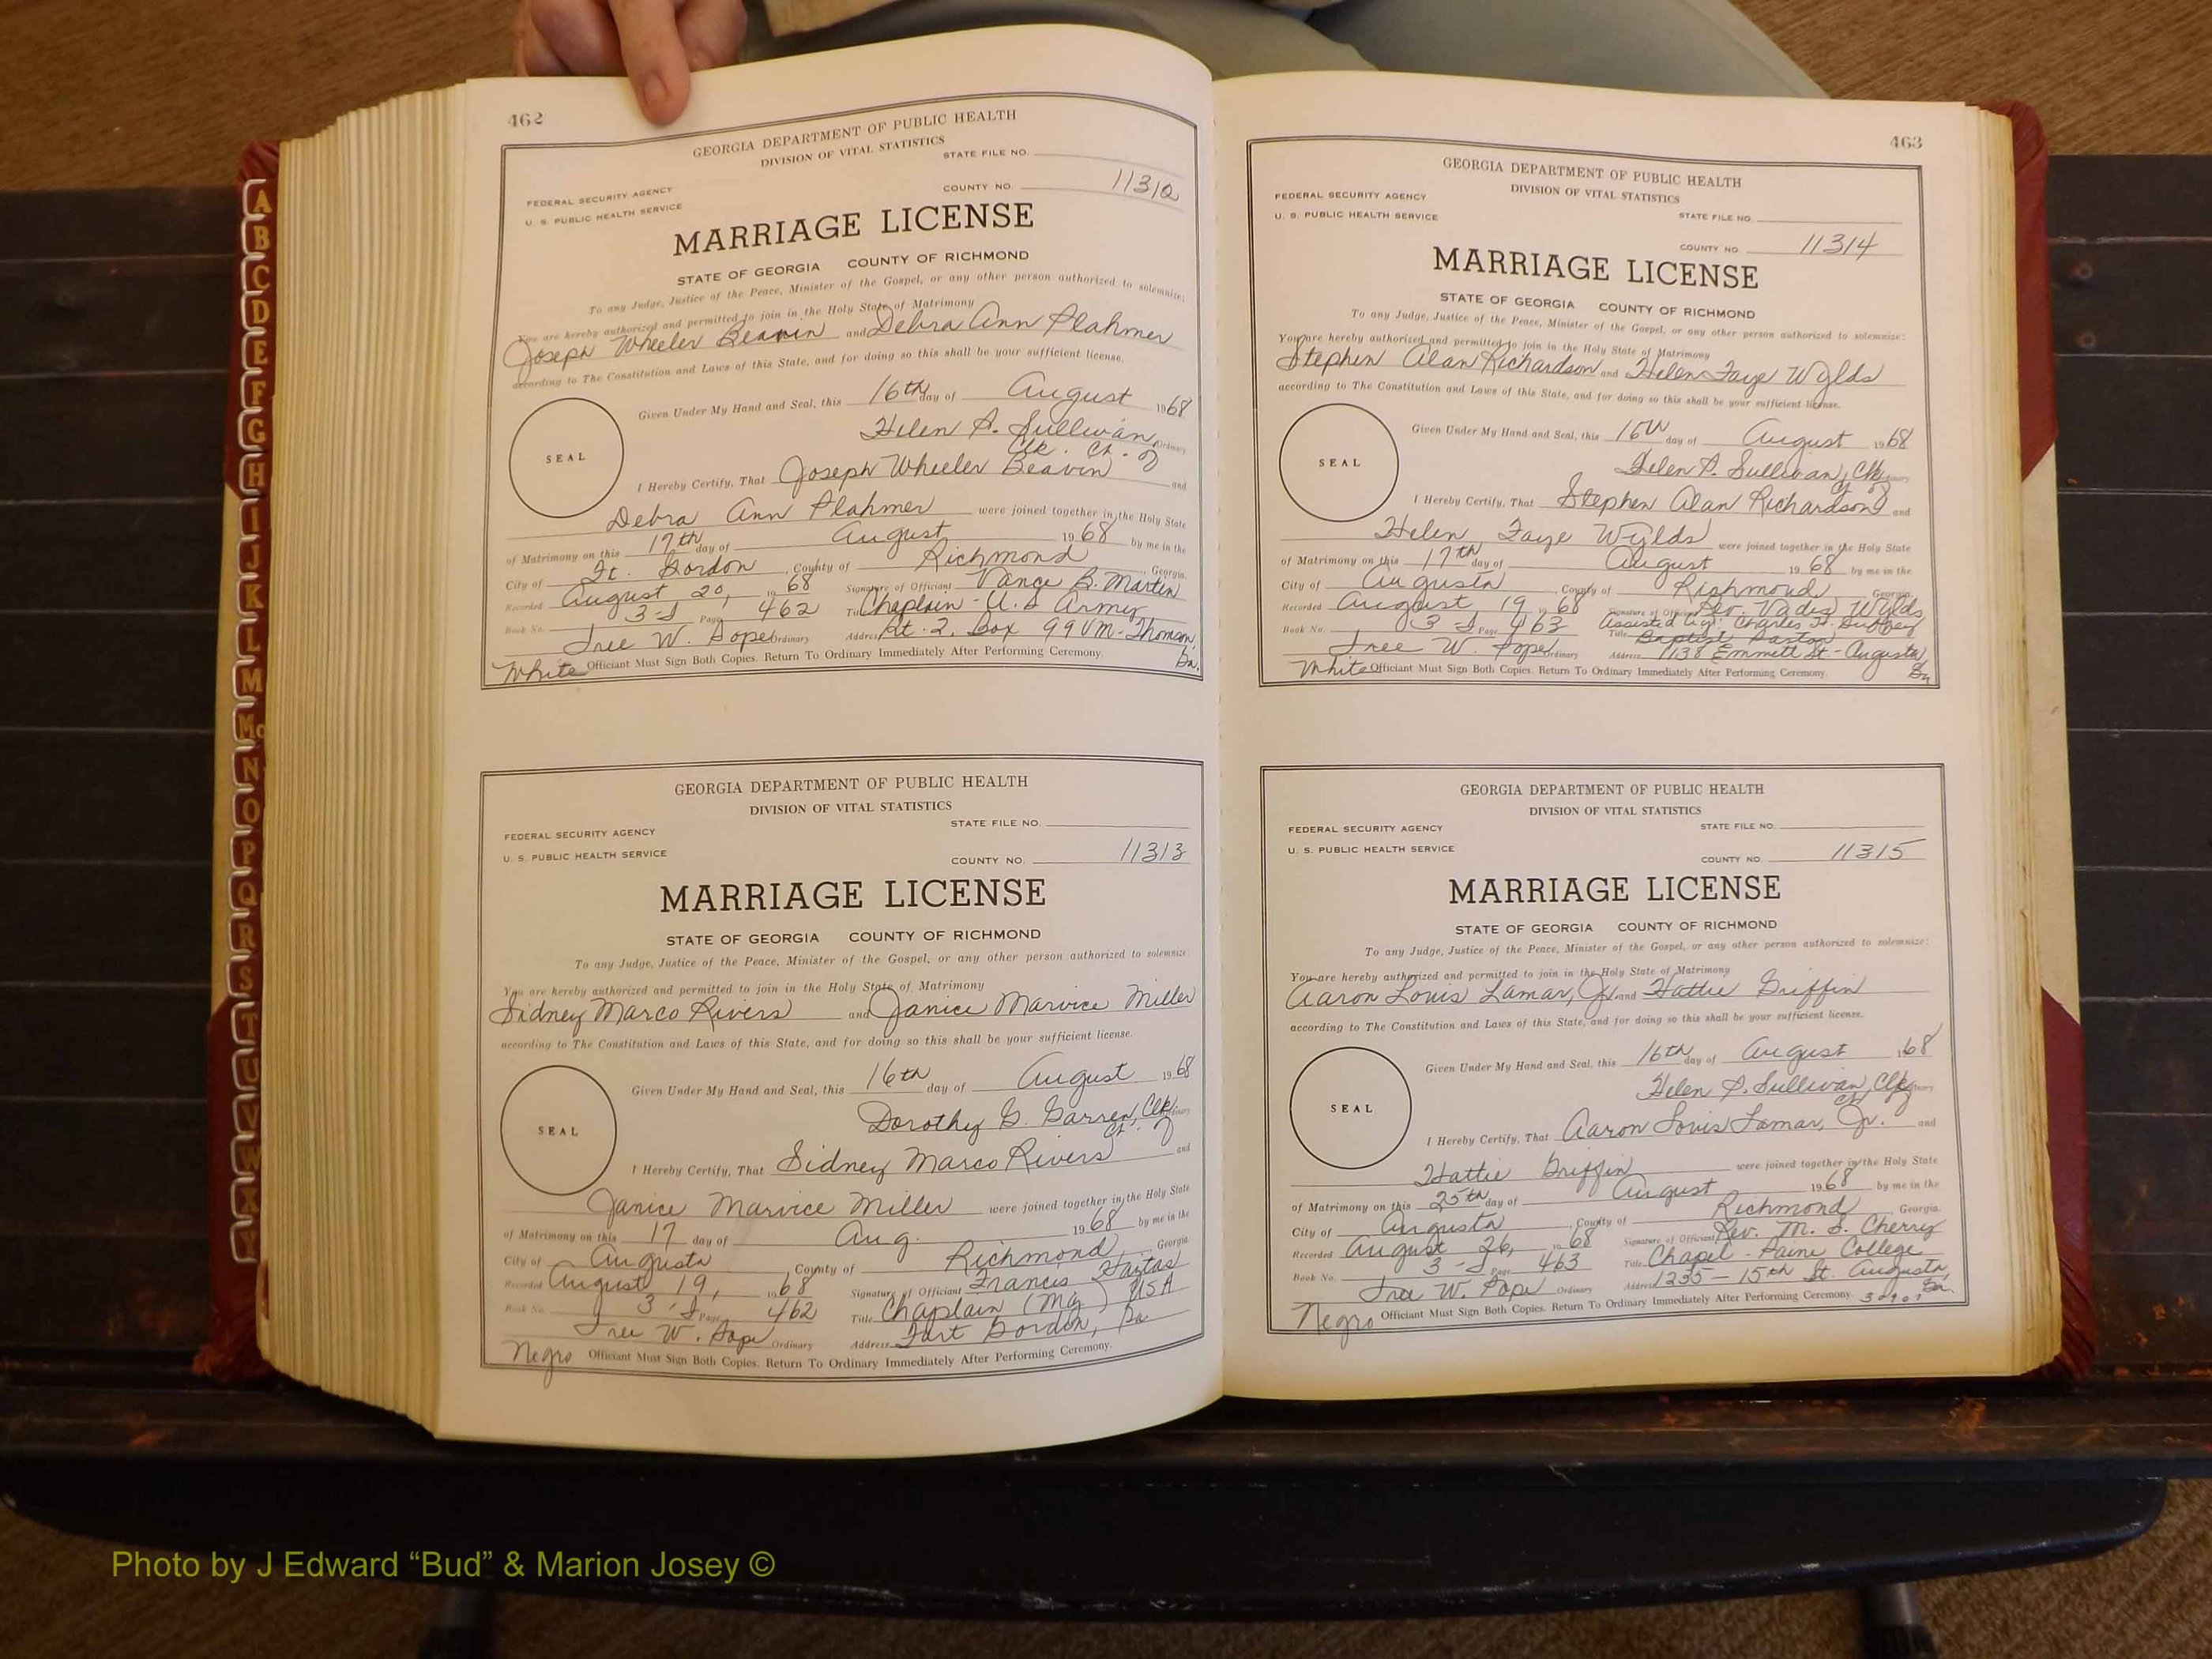 462
GEORGIA DEPARTMENT OF PUBLIC HEALTH
DIVISION OF VITAL STATISTICS
STATE FILE NO.
FEDERAL SECURITY AGENCY
U. S. PUBLIC HEALTH SERVICE
COUNTY NO.
MARRIAGE LICENSE
STATE OF GEORGIA COUNTY OF RICHMOND
To any Judge, Justice of the Peace, Minister of the Gospel, or any other person authorized to solemnize:
You are hereby authorized and permitted to join in the Holy State of Matrimony
Joseph Wheeler Beavin and Debra Ann Plahmer
according to The Constitution and Laws of this State, and for doing so this shall be your sufficient license.
Given Under My Hand and Seal, this 16th day of August 1968
Helen P. Sullivan Ordinary
Clk. Ct. of
SEAL
I Hereby Certify, That Joseph Wheeler Beavin and
Debra Ann Plahmer were joined together in the Holy State
of Matrimony on this 17th day of August 1968 by me in the
City of Ft. Gordon, County of Richmond, Georgia.
Recorded August 20, 1968 Signature of Officiant Vance B. Martin
Book No. 3-J Page 462 Title Chaplain - U.S Army
Tree W. Pope Ordinary Address Rt. 2, Box 99 VM - Thomson, Ga.
White Officiant Must Sign Both Copies. Return To Ordinary Immediately After Performing Ceremony.
GEORGIA DEPARTMENT OF PUBLIC HEALTH
DIVISION OF VITAL STATISTICS
STATE FILE NO.
FEDERAL SECURITY AGENCY
U. S. PUBLIC HEALTH SERVICE
COUNTY NO. 11313
MARRIAGE LICENSE
STATE OF GEORGIA COUNTY OF RICHMOND
To any Judge, Justice of the Peace, Minister of the Gospel, or any other person authorized to solemnize:
You are hereby authorized and permitted to join in the Holy State of Matrimony
Sidney Marco Rivers and Janice Marvice Miller
according to The Constitution and Laws of this State, and for doing so this shall be your sufficient license.
Given Under My Hand and Seal, this 16th day of August 1968
Dorothy G. Garren, Clk. Ordinary
Ct. of
SEAL
I Hereby Certify, That Sidney Marco Rivers and
Janice Marvice Miller were joined together in the Holy State
of Matrimony on this 17 day of Aug. 1968 by me in the
City of Augusta, County of Richmond, Georgia.
Recorded August 19, 1968 Signature of Officiant Francis
Book No. 3-J Page 462 Title Chaplain (Maj) USA
Tree W. Pope Ordinary Address Fort Gordon, Ga
Negro Officiant Must Sign Both Copies. Return To Ordinary Immediately After Performing Ceremony.
463
GEORGIA DEPARTMENT OF PUBLIC HEALTH
DIVISION OF VITAL STATISTICS
FEDERAL SECURITY AGENCY
U. S. PUBLIC HEALTH SERVICE
STATE FILE NO.
COUNTY NO. 11314
MARRIAGE LICENSE
STATE OF GEORGIA COUNTY OF RICHMOND
To any Judge, Justice of the Peace, Minister of the Gospel, or any other person authorized to solemnize:
You are hereby authorized and permitted to join in the Holy State of Matrimony
Stephen Alan Richardson and Helen Faye Wylds
according to The Constitution and Laws of this State, and for doing so this shall be your sufficient license.
Given Under My Hand and Seal, this 16th day of August 1968
Helen P. Sullivan, Clk. Ordinary
Ct. of
SEAL
I Hereby Certify, That Stephen Alan Richardson and
Helen Faye Wylds were joined together in the Holy State
of Matrimony on this 17th day of August 1968 by me in the
City of Augusta, County of Richmond, Georgia.
Recorded August 19 1968 Signature of Officiant Rev. Vadis Wylds
Assisted by: Charles H.
Book No. 3-J Page 463 Title Baptist Pastor
Tree W. Pope Ordinary Address 1138 Emmett St. - Augusta, Ga
White Officiant Must Sign Both Copies. Return To Ordinary Immediately After Performing Ceremony.
GEORGIA DEPARTMENT OF PUBLIC HEALTH
DIVISION OF VITAL STATISTICS
FEDERAL SECURITY AGENCY
STATE FILE NO.
U. S. PUBLIC HEALTH SERVICE
COUNTY NO. 11315
MARRIAGE LICENSE
STATE OF GEORGIA COUNTY OF RICHMOND
To any Judge, Justice of the Peace, Minister of the Gospel, or any other person authorized to solemnize:
You are hereby authorized and permitted to join in the Holy State of Matrimony
Aaron Louis Lamar, Jr. and Hattie Griffin
according to The Constitution and Laws of this State, and for doing so this shall be your sufficient license.
Given Under My Hand and Seal, this 16th day of August 1968
Helen P. Sullivan, Clk. Ordinary
Ct. of
SEAL
I Hereby Certify, That Aaron Louis Lamar, Jr. and
Hattie Griffin were joined together in the Holy State
of Matrimony on this 25th day of August 1968 by me in the
City of Augusta, County of Richmond, Georgia.
Recorded August 26, 1968 Signature of Officiant Rev. M. S. Cherry
Book No. 3-J Page 463 Title Chapel - Paine College
Tree W. Pope Ordinary Address 1235 - 15th St. Augusta, Ga. 30901
Negro Officiant Must Sign Both Copies. Return To Ordinary Immediately After Performing Ceremony.
A
B
C
D
E
F
G
H
I
J
K
L
M
Mc
N
O
P
Q
R
S
T
U
V
W
X
Y
Photo by J Edward “Bud” & Marion Josey ©